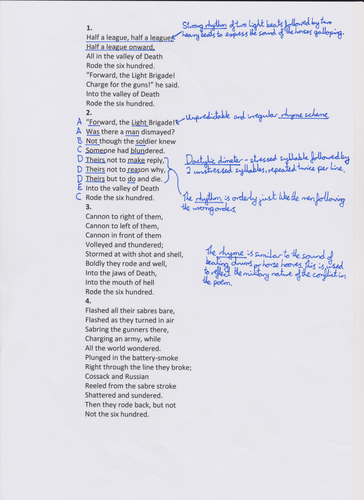 1.
Half a league, half a league,
Half a league onward,
All in the valley of Death
Rode the six hundred.
"Forward, the Light Brigade!
Charge for the guns!" he said.
Into the valley of Death
Rode the six hundred.
Strong rhythm of two light beats followed by two
heavy beats to express the sound of the horses galloping.
2.
A "Forward, the Light Brigade!"
A Was there a man dismayed?
B Not though the soldier knew
C Someone had blundered.
D Theirs not to make reply,
D Theirs not to reason why,
D Theirs but to do and die.
E Into the valley of Death
C Rode the six hundred.
Unpredictable and irregular rhyme scheme
Dactylic dimeter - stressed syllable followed by
2 unstressed syllables, repeated twice per line.
The rhythm is orderly just like the men following
the wrong orders.
3.
Cannon to right of them,
Cannon to left of them,
Cannon in front of them
Volleyed and thundered;
Stormed at with shot and shell,
Boldly they rode and well,
Into the jaws of Death,
Into the mouth of hell
Rode the six hundred.
The rhyme is similar to the sound of
beating drums or horse hooves. This is used
to reflect the military nature of the conflict in
the poem.
4.
Flashed all their sabres bare,
Flashed as they turned in air
Sabring the gunners there,
Charging an army, while
All the world wondered.
Plunged in the battery-smoke
Right through the line they broke;
Cossack and Russian
Reeled from the sabre stroke
Shattered and sundered.
Then they rode back, but not
Not the six hundred.